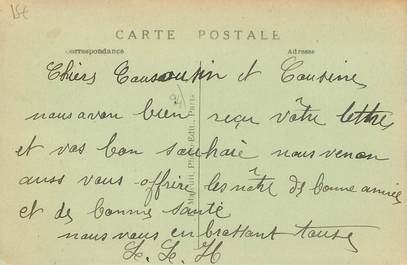 CARTE POSTALE
Correspondance
Adresse
Chiers Cousin et Cousine
nous avon bien reçu vôtre lettre
et vos bon souhaié nous venon
auss vous offrire les nôtre de bonne année
et de bonne santé
nous vous enbrassant touse